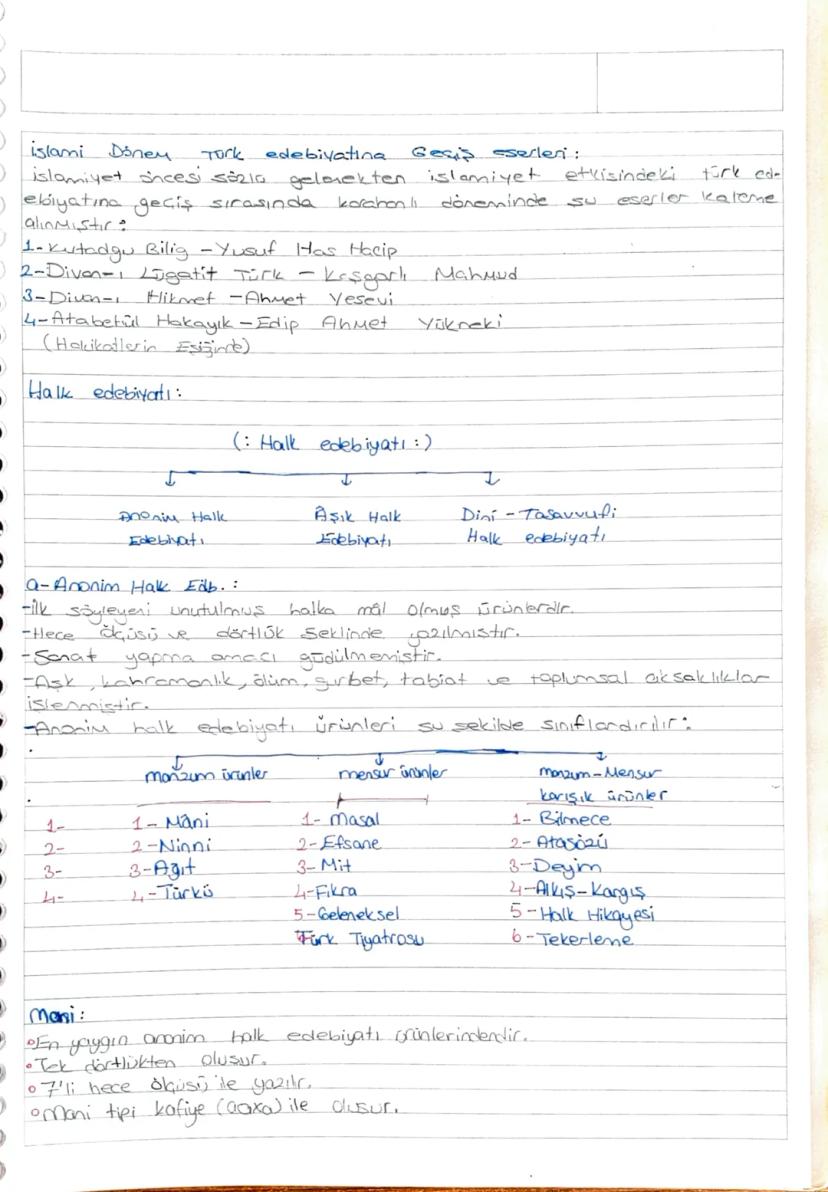 islami Dönem Türk edebiyatına Geçiş eserleri:
islamiyet öncesi sözlü gelenekten islamiyet etkisindeki türk ed-
ebiyatına geçiş sırasında karahanlı döneminde şu eserler kaleme
alınmıştır:
1-Kutadgu Bilig - Yusuf Has Hacip
2-Divan-ı Lügatit Türk - Kaşgarlı Mahmud
3-Divan-ı Hikmet - Ahmet Yesevi
4-Atabetül Hakayık - Edip Ahmet Yükneki
(Hakikatlerin Eşiğinde)
Halk edebiyatı:
(: Halk edebiyatı :)
Anonim Halk Edebiyatı
Âşık Halk Edebiyatı
Dini - Tasavvufi Halk edebiyatı
a-Anonim Halk Edb. :
-İlk söyleyeni unutulmuş halka mâl olmuş ürünlerdir.
-Hece ölçüsü ve dörtlük şeklinde yazılmıştır.
-Sanat yapma amacı güdülmemiştir.
-Aşk, kahramanlık, ölüm, gurbet, tabiat ve toplumsal aksaklıklar
işlenmiştir.
-Anonim halk edebiyatı ürünleri şu şekilde sınıflandırılır:
manzum ürünler
1- 1-Mâni
2- 2-Ninni
3- 3-Ağıt
4- 4-Türkü
mensur ürünler
1-Masal
2-Efsane
3-Mit
4-Fıkra
5-Geleneksel
Türk Tiyatrosu
manzum-Mensur
karışık ürünler
1-Bilmece
2-Atasözü
3-Deyim
4-Alkış-Kargış
5-Halk Hikayesi
6-Tekerleme
Mani:
•En yaygın anonim halk edebiyatı ürünlerindendir.
•Tek dörtlükten oluşur.
•7'li hece ölçüsü ile yazılır.
•Mani tipi kafiye (aaxa) ile oluşur.